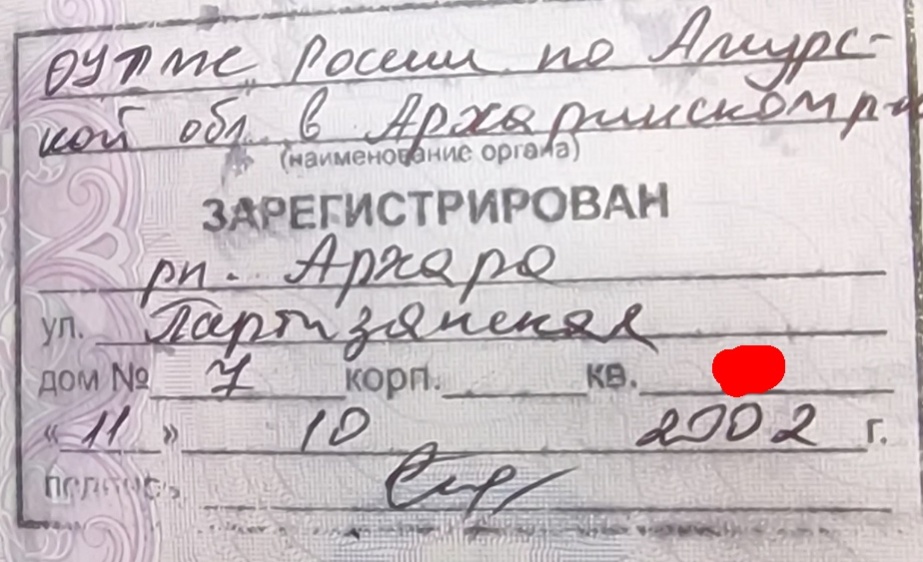 ОУФМС России по Амурс-
кой обл. в Архаринском р-н
(наименование органа)
ЗАРЕГИСТРИРОВАН
рп. Архара
ул. Партизанская
дом № 7 корп. кв.
« 11 » 10 2002 г.
подпись